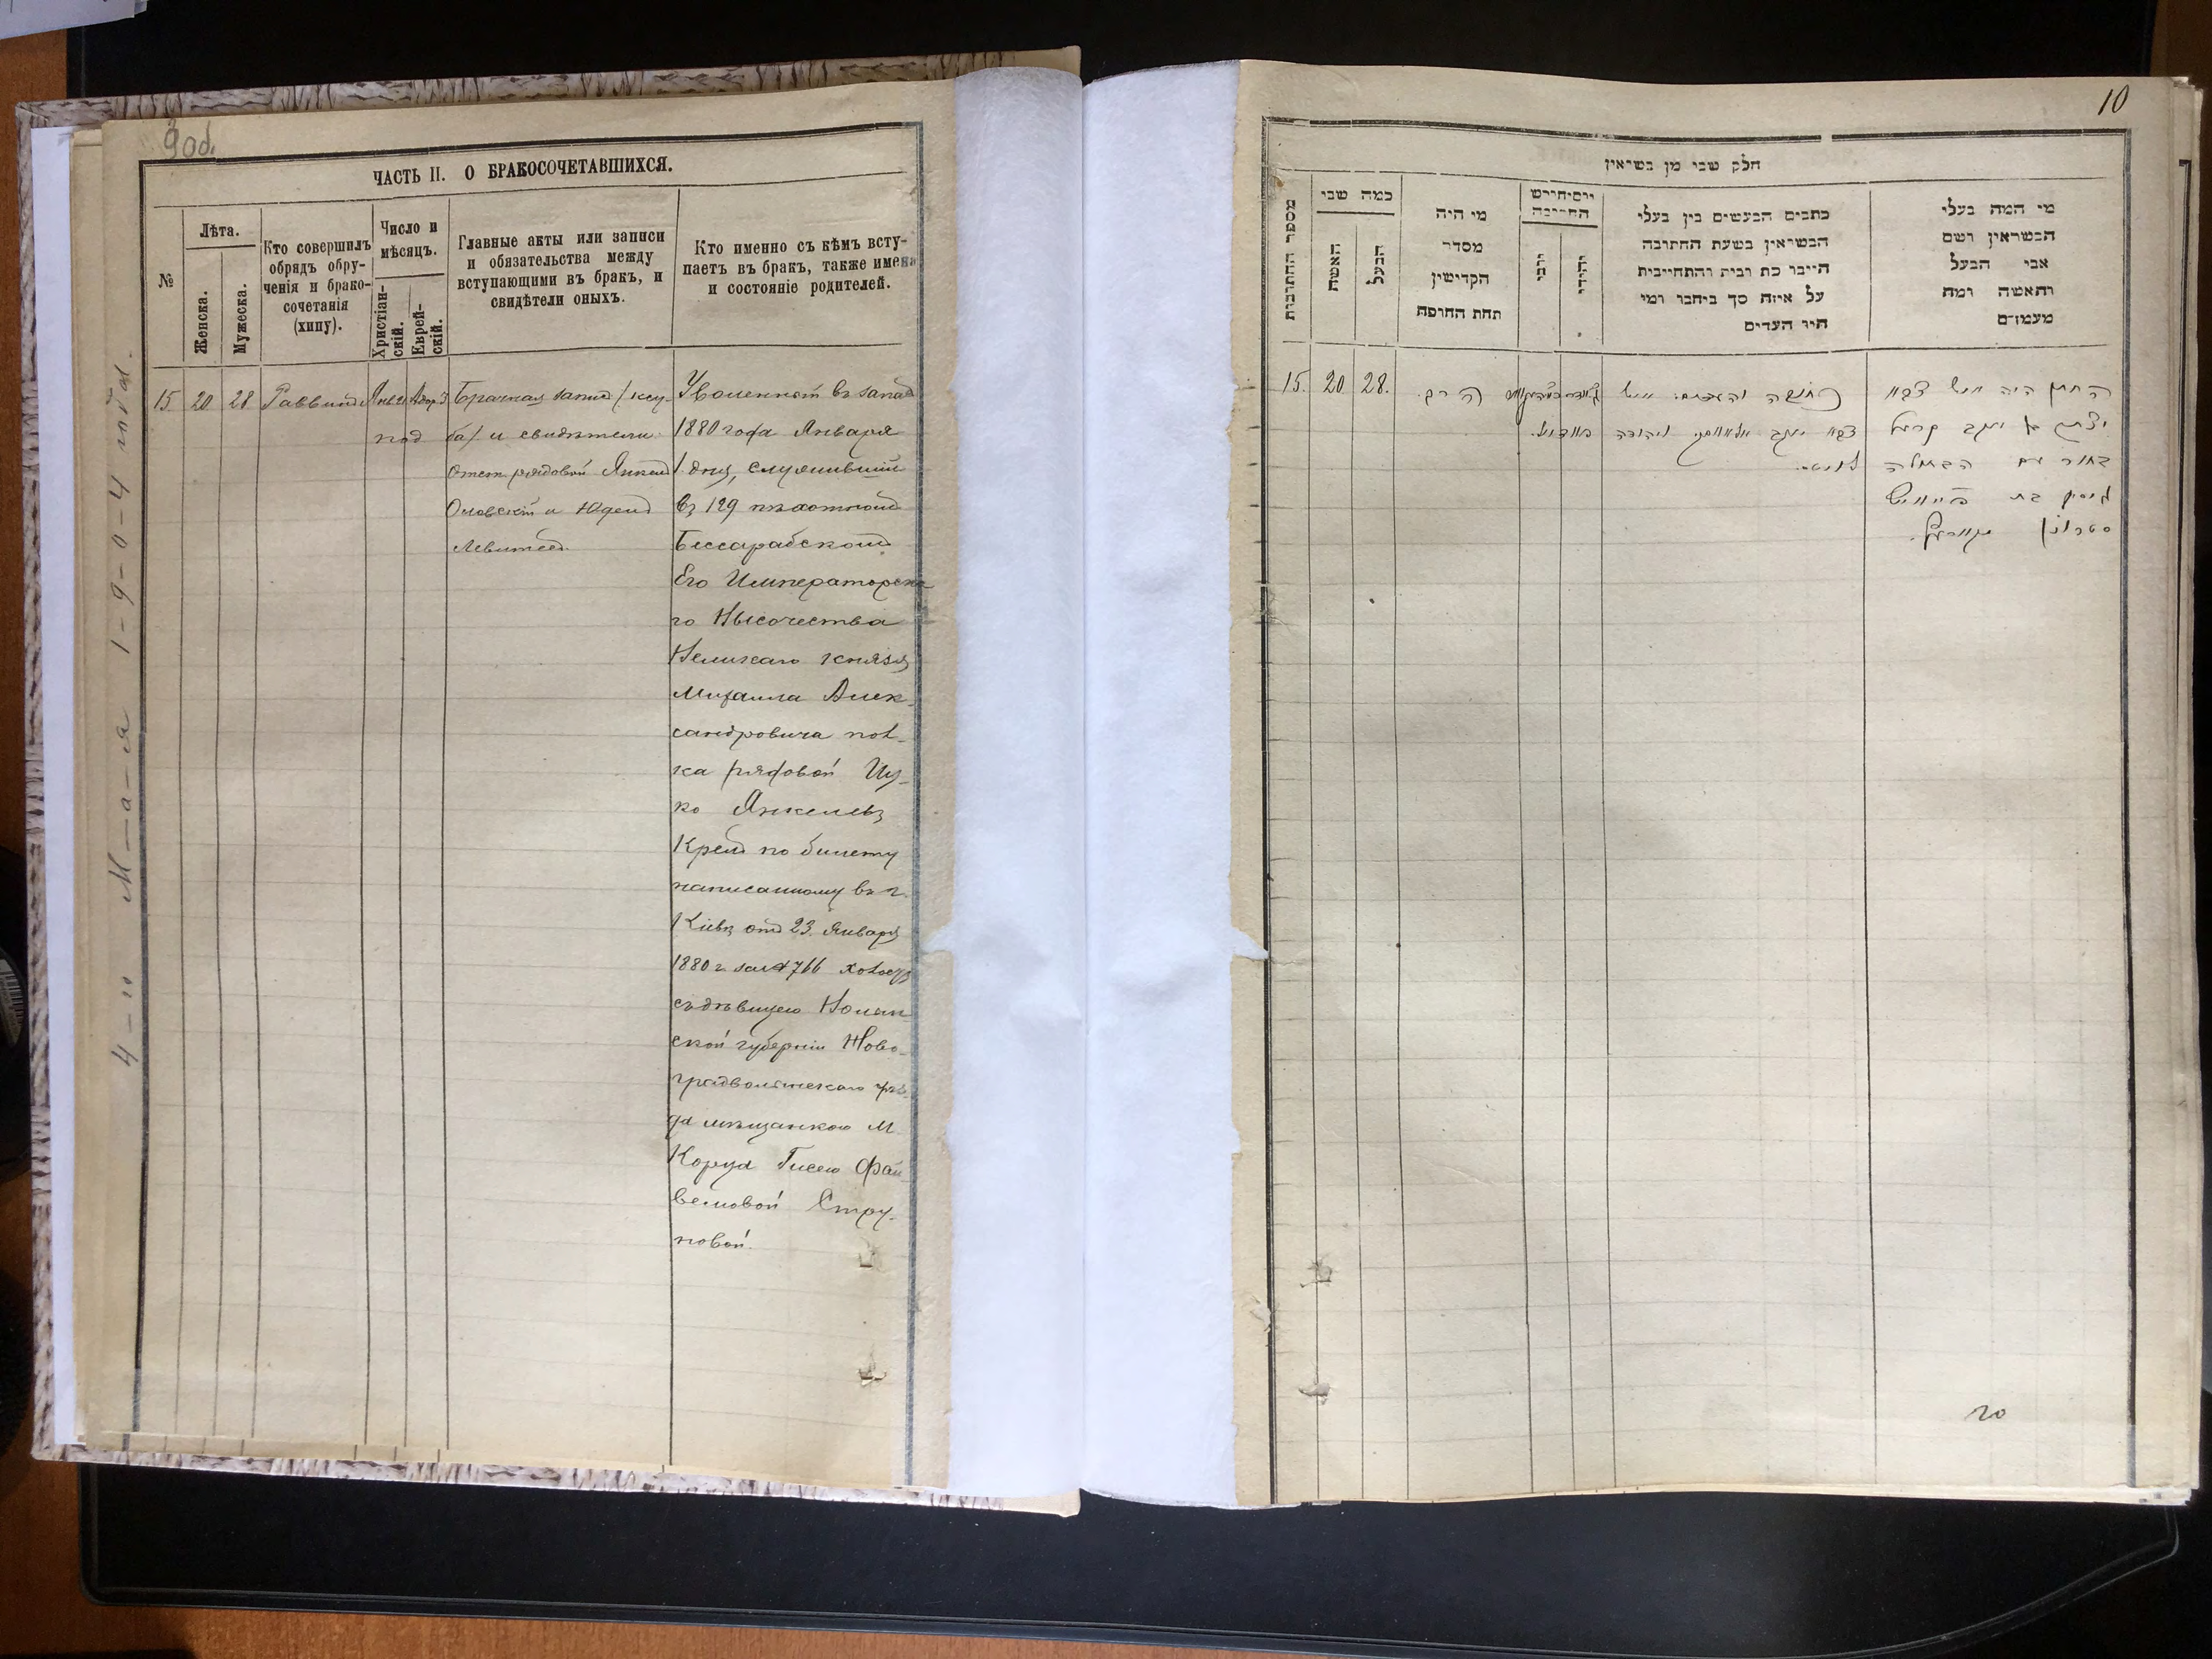 9 об.
ЧАСТЬ II. О БРАКОСОЧЕТАВШИХСЯ.
№
Лѣта.
Женска.
Мужеска.
Кто совершилъ
обрядъ обру-
ченія и брако-
сочетанія
(хипу).
Число и
мѣсяцъ.
Христіан-
скій.
Еврей-
скій.
Главные акты или записи
и обязательства между
вступающими въ бракъ, и
свидѣтели оныхъ.
Кто именно съ кѣмъ всту-
паетъ въ бракъ, также имена
и состояніе родителей.
15. 20 28 Раввинъ
Брачная запис / кту-
ба / и свидѣтели
рядовой Янкель
и Юдель
Левитъ
Уволенный въ запас
1880 года Января
1. дня, служивший
въ 129 пѣхотномъ
Бессарабскомъ
Его Императорска-
го Высочества
Великаго князя
Михаила Алек-
сандровича пол-
ка рядовой Иц-
ко Янкелевъ
Крель по билету
написанному въ г.
Кіевѣ отъ 23 Января
1880 г. за № 766 холост
съ дѣвицею Волын
ской губерніи Ново-
градволынскаго уѣз-
да мѣщанкою м.
Корца Гисею Фай
велевой Стру-
новой.
4-го М-а-я 1-9-0-4 года.
10
חלק שני מן נשואין
מספר החתונות
כמה שני
האשה
הבעל
מי היה
מסדר
הקדושין
תחת החופה
יום וחודש
החתונה
כתבים הנעשים בין בעלי
הנשואין בשעת החתונה
היינו כת ובית והתחייבות
על איזה סך ביחבו ומי
היו העדים
מי המה בעלי
הנשואין ושם
אבי הבעל
והאשה ומה
מעמדם
15. 20 28. הרב.
החתן היה איש צבא
יצחק יעקב קרעל
בחור עם הבתולה
גיסי בת פייוויש
סטרון מקאריץ.
20